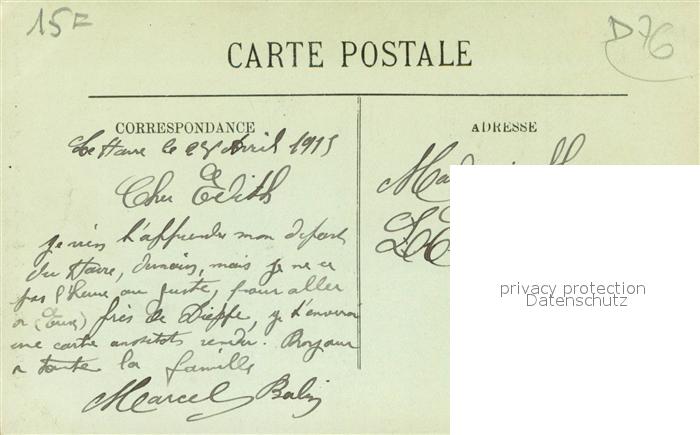 15F
D76
CARTE POSTALE
CORRESPONDANCE
Le Havre le 25 Avril 1915
Cher Edith
je viens t'apprendre mon départ
du Havre, demain, mais je ne c
pas l'heure au juste, pour aller
a (Eux) près de Dieppe, je t'enverrai
une carte aussitots rendu. Bonjour
a toute la famille
Marcel
ADRESSE
privacy protection
Datenschutz